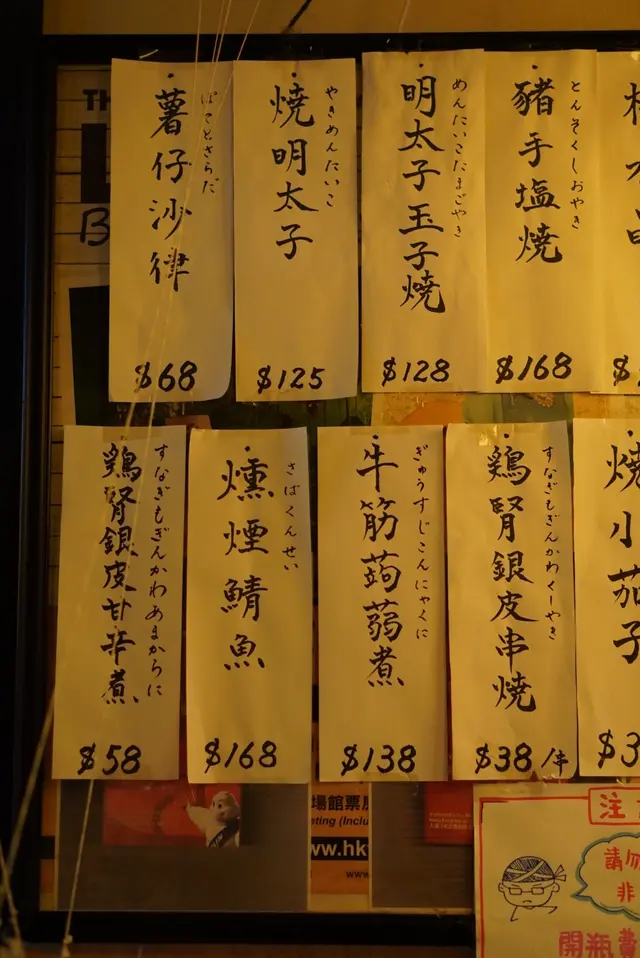 薯仔沙律
ぽてとさらだ
$68
焼明太子
やきめんたいこ
$125
明太子玉子焼
めんたいこたまごやき
$128
豬手塩焼
とんそくしおやき
$168
鶏腎銀皮甘辛煮
すなぎもぎんかわあまからに
$58
燻煙鯖魚
さばくんせい
$168
牛筋蒟蒻煮
ぎゅうすじこんにゃくに
$138
鶏腎銀皮串焼
すなぎもぎんかわくしやき
$38/串
焼小茄子
$3
場館票
www.hk
注
請勿
非
開瓶費